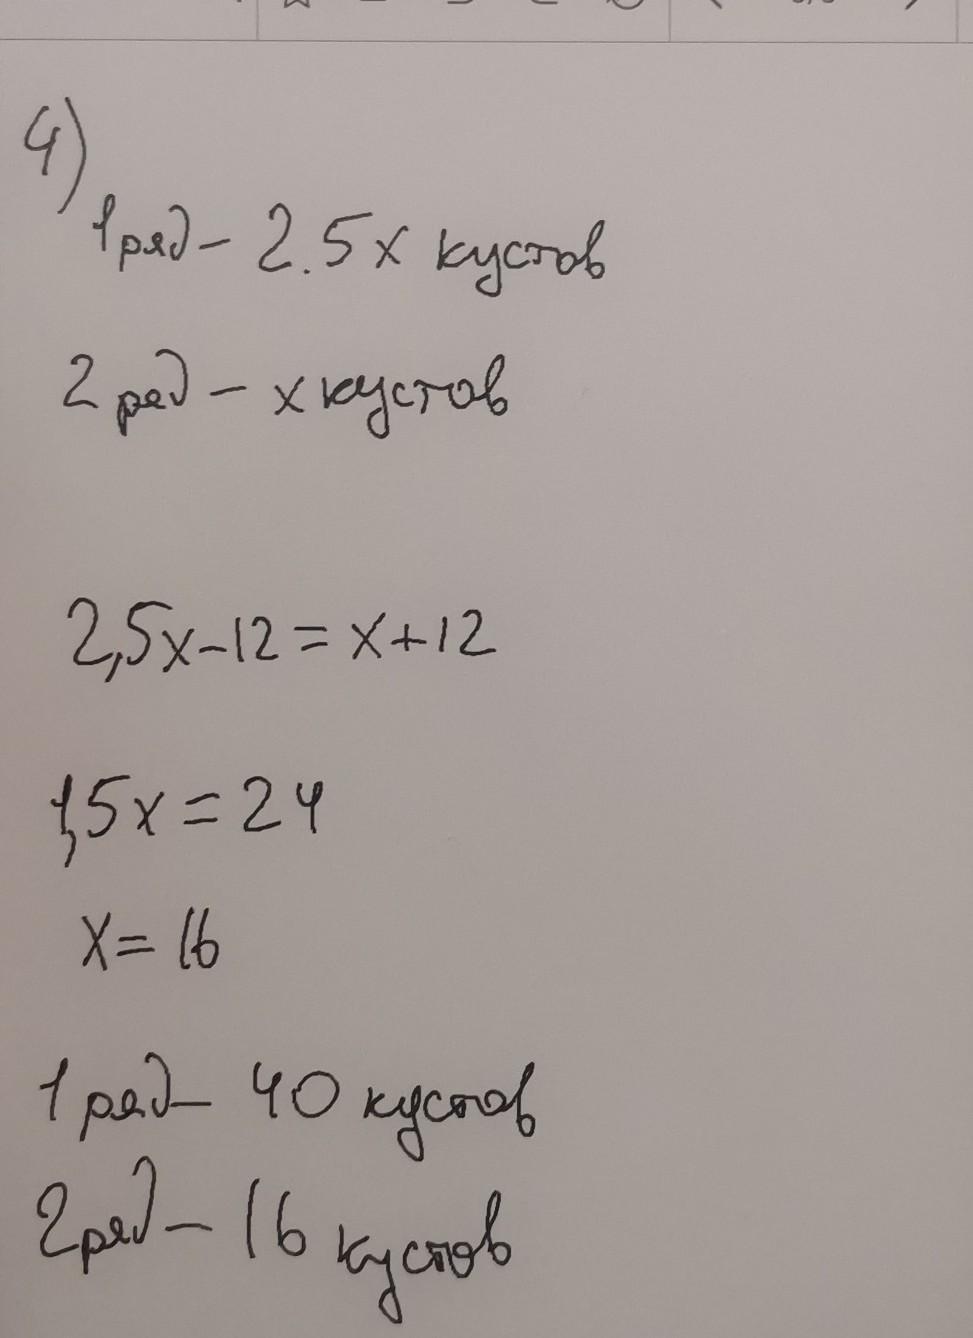 4)
1 ряд - 2.5x кустов
2 ряд - x кустов
2,5x-12=x+12
1,5x=24
x=16
1 ряд - 40 кустов
2 ряд - 16 кустов